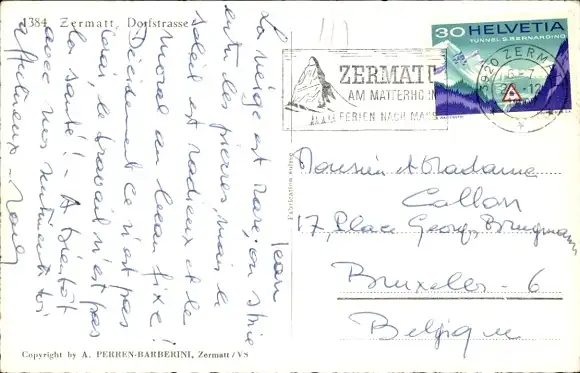 1384 Zermatt, Dorfstrasse
La neige est rare; on skie
entre les pierres, mais le
soleil est radieux et le
moral au beau fixe!
Décidément ce n'est pas
le travail n'est pas
la santé! - A bientôt
avec nos sentiments
affectueux -
Jean
Copyright by A. PERREN-BARBERINI, Zermatt/VS
30 HELVETIA
TUNNEL S. BERNARDINO
3920 ZERM
ZERMATT
AM MATTERHORN
FERIEN NACH MASS
Monsieur et Madame
Callon
17, Place Georges Brugmann
Bruxelles - 6
Belgique